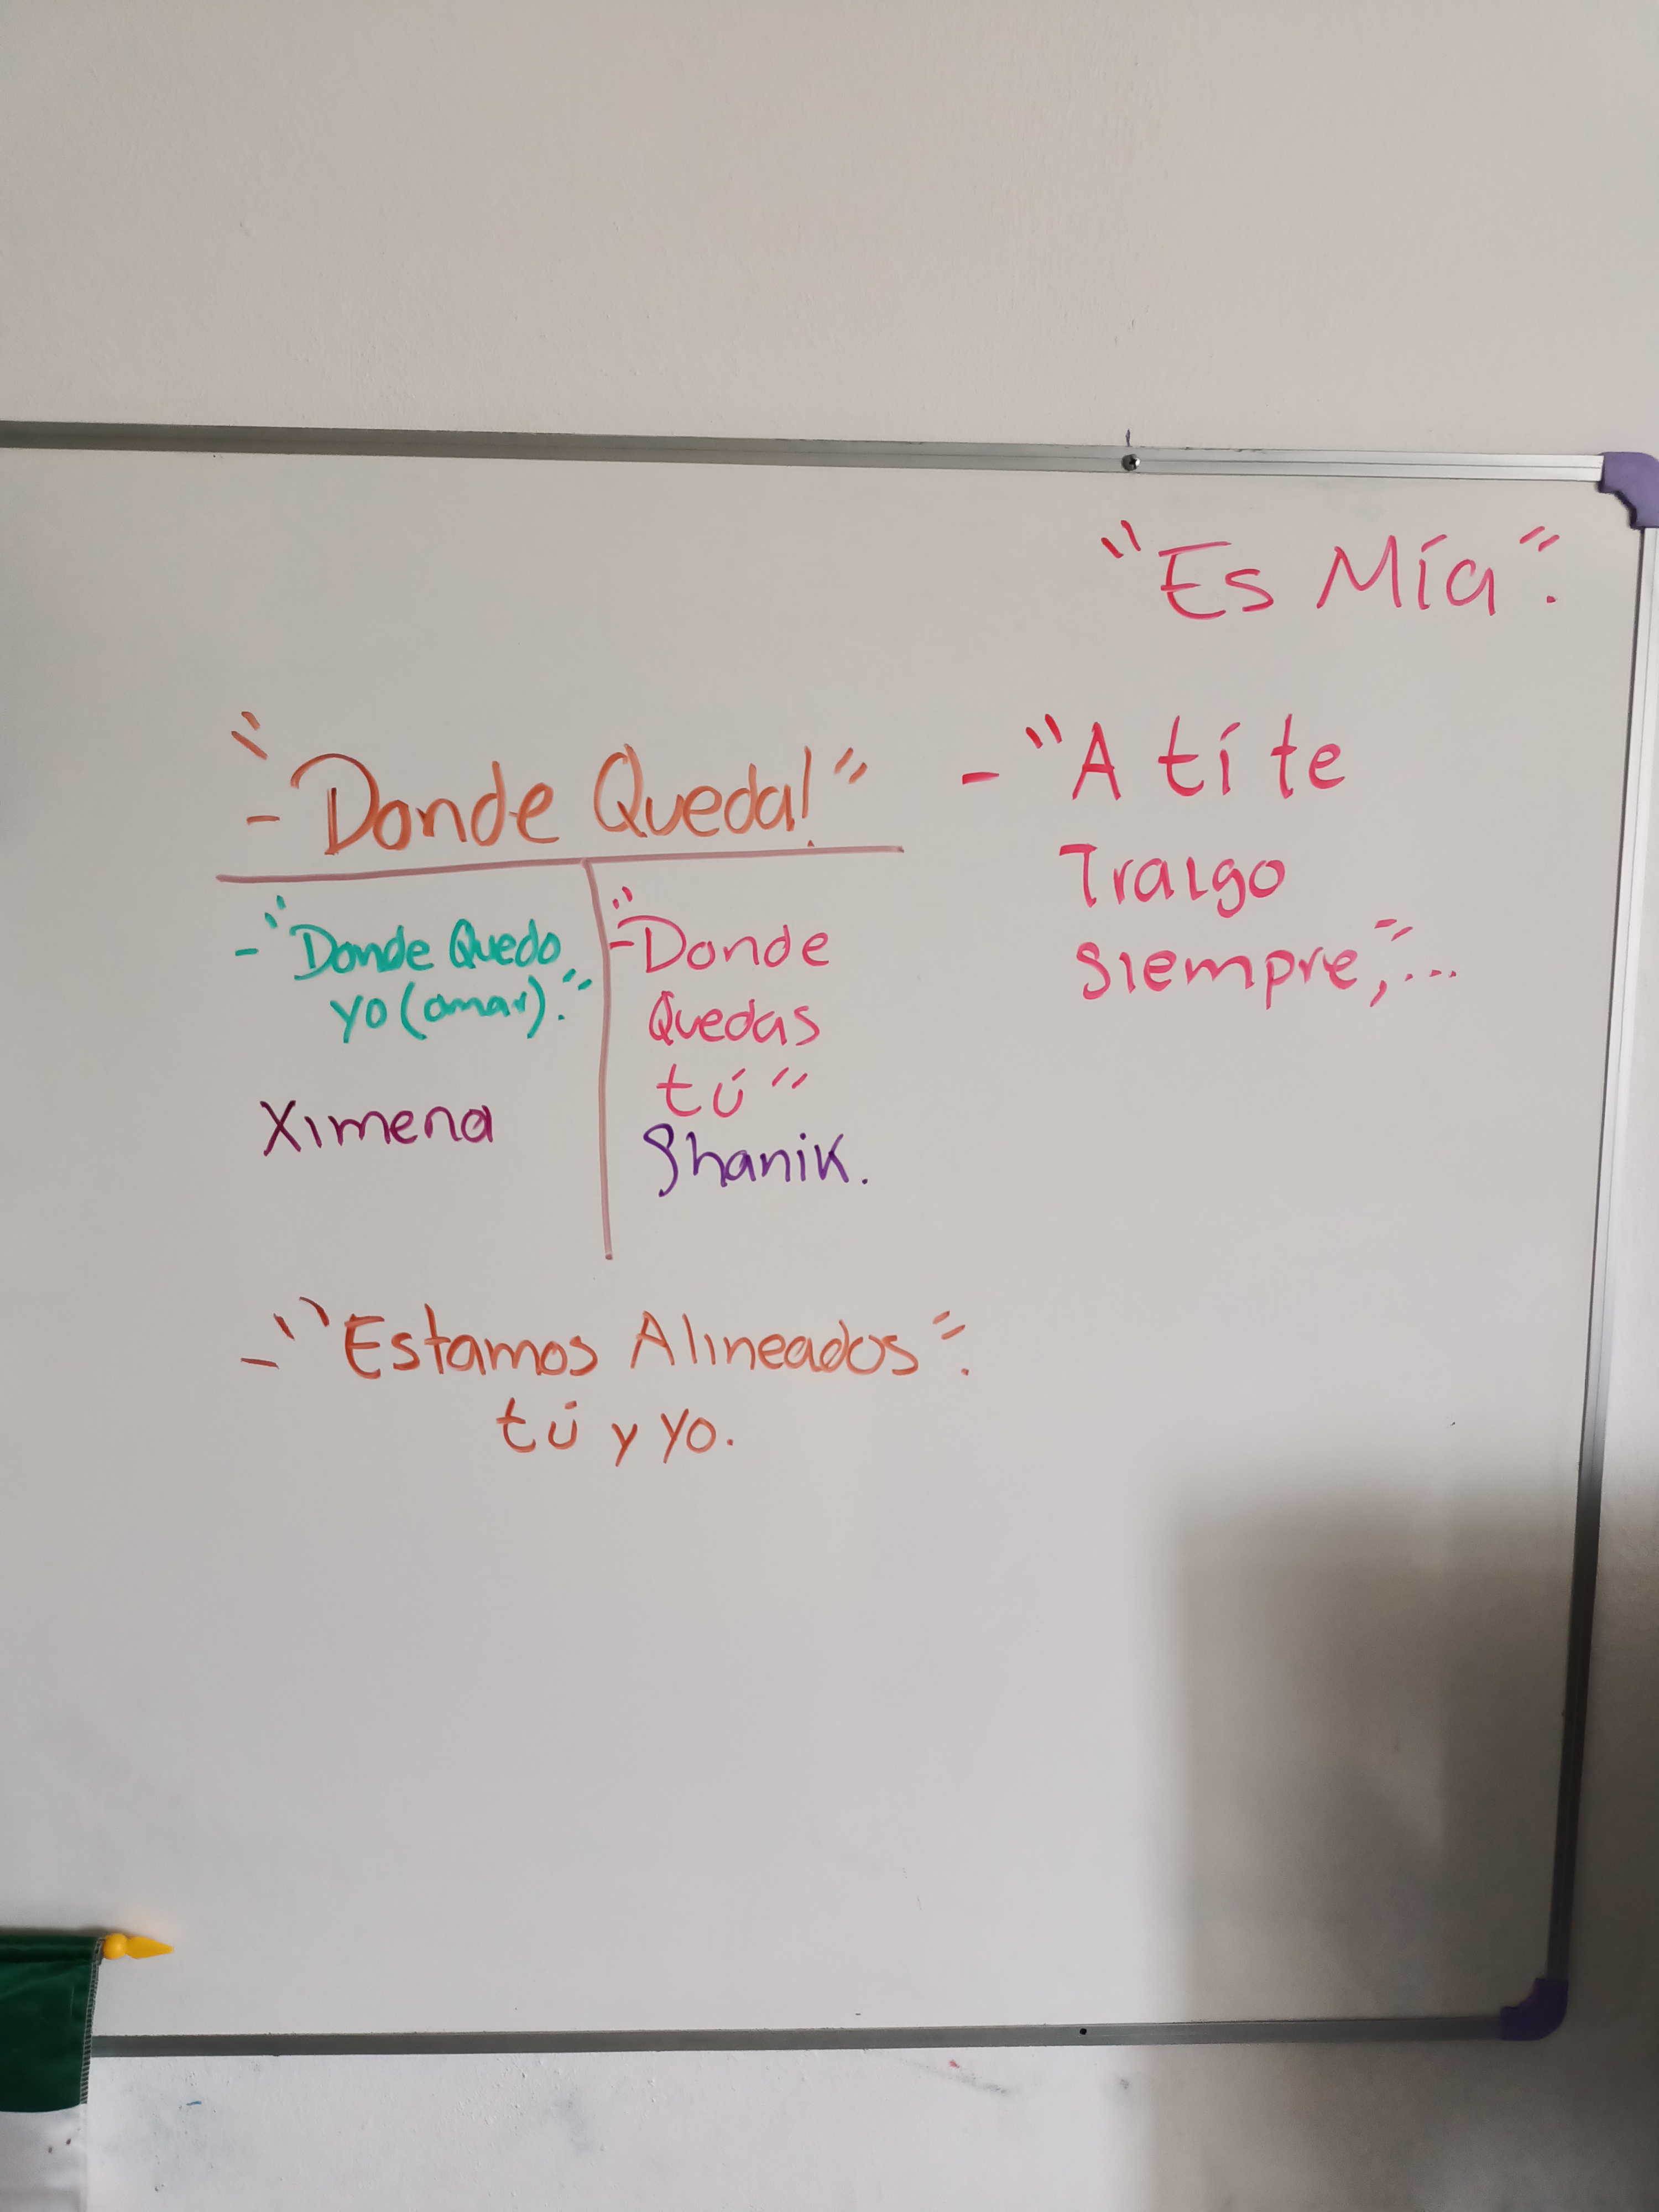 "Es Mía".
- "Donde Queda!"
- "Donde Quedo
yo (amar)."
Ximena
"- Donde
Quedas
tú"
Shanik.
- "Estamos Alineados".
tú y yo.
- "A tí te
Traigo
siempre,"...